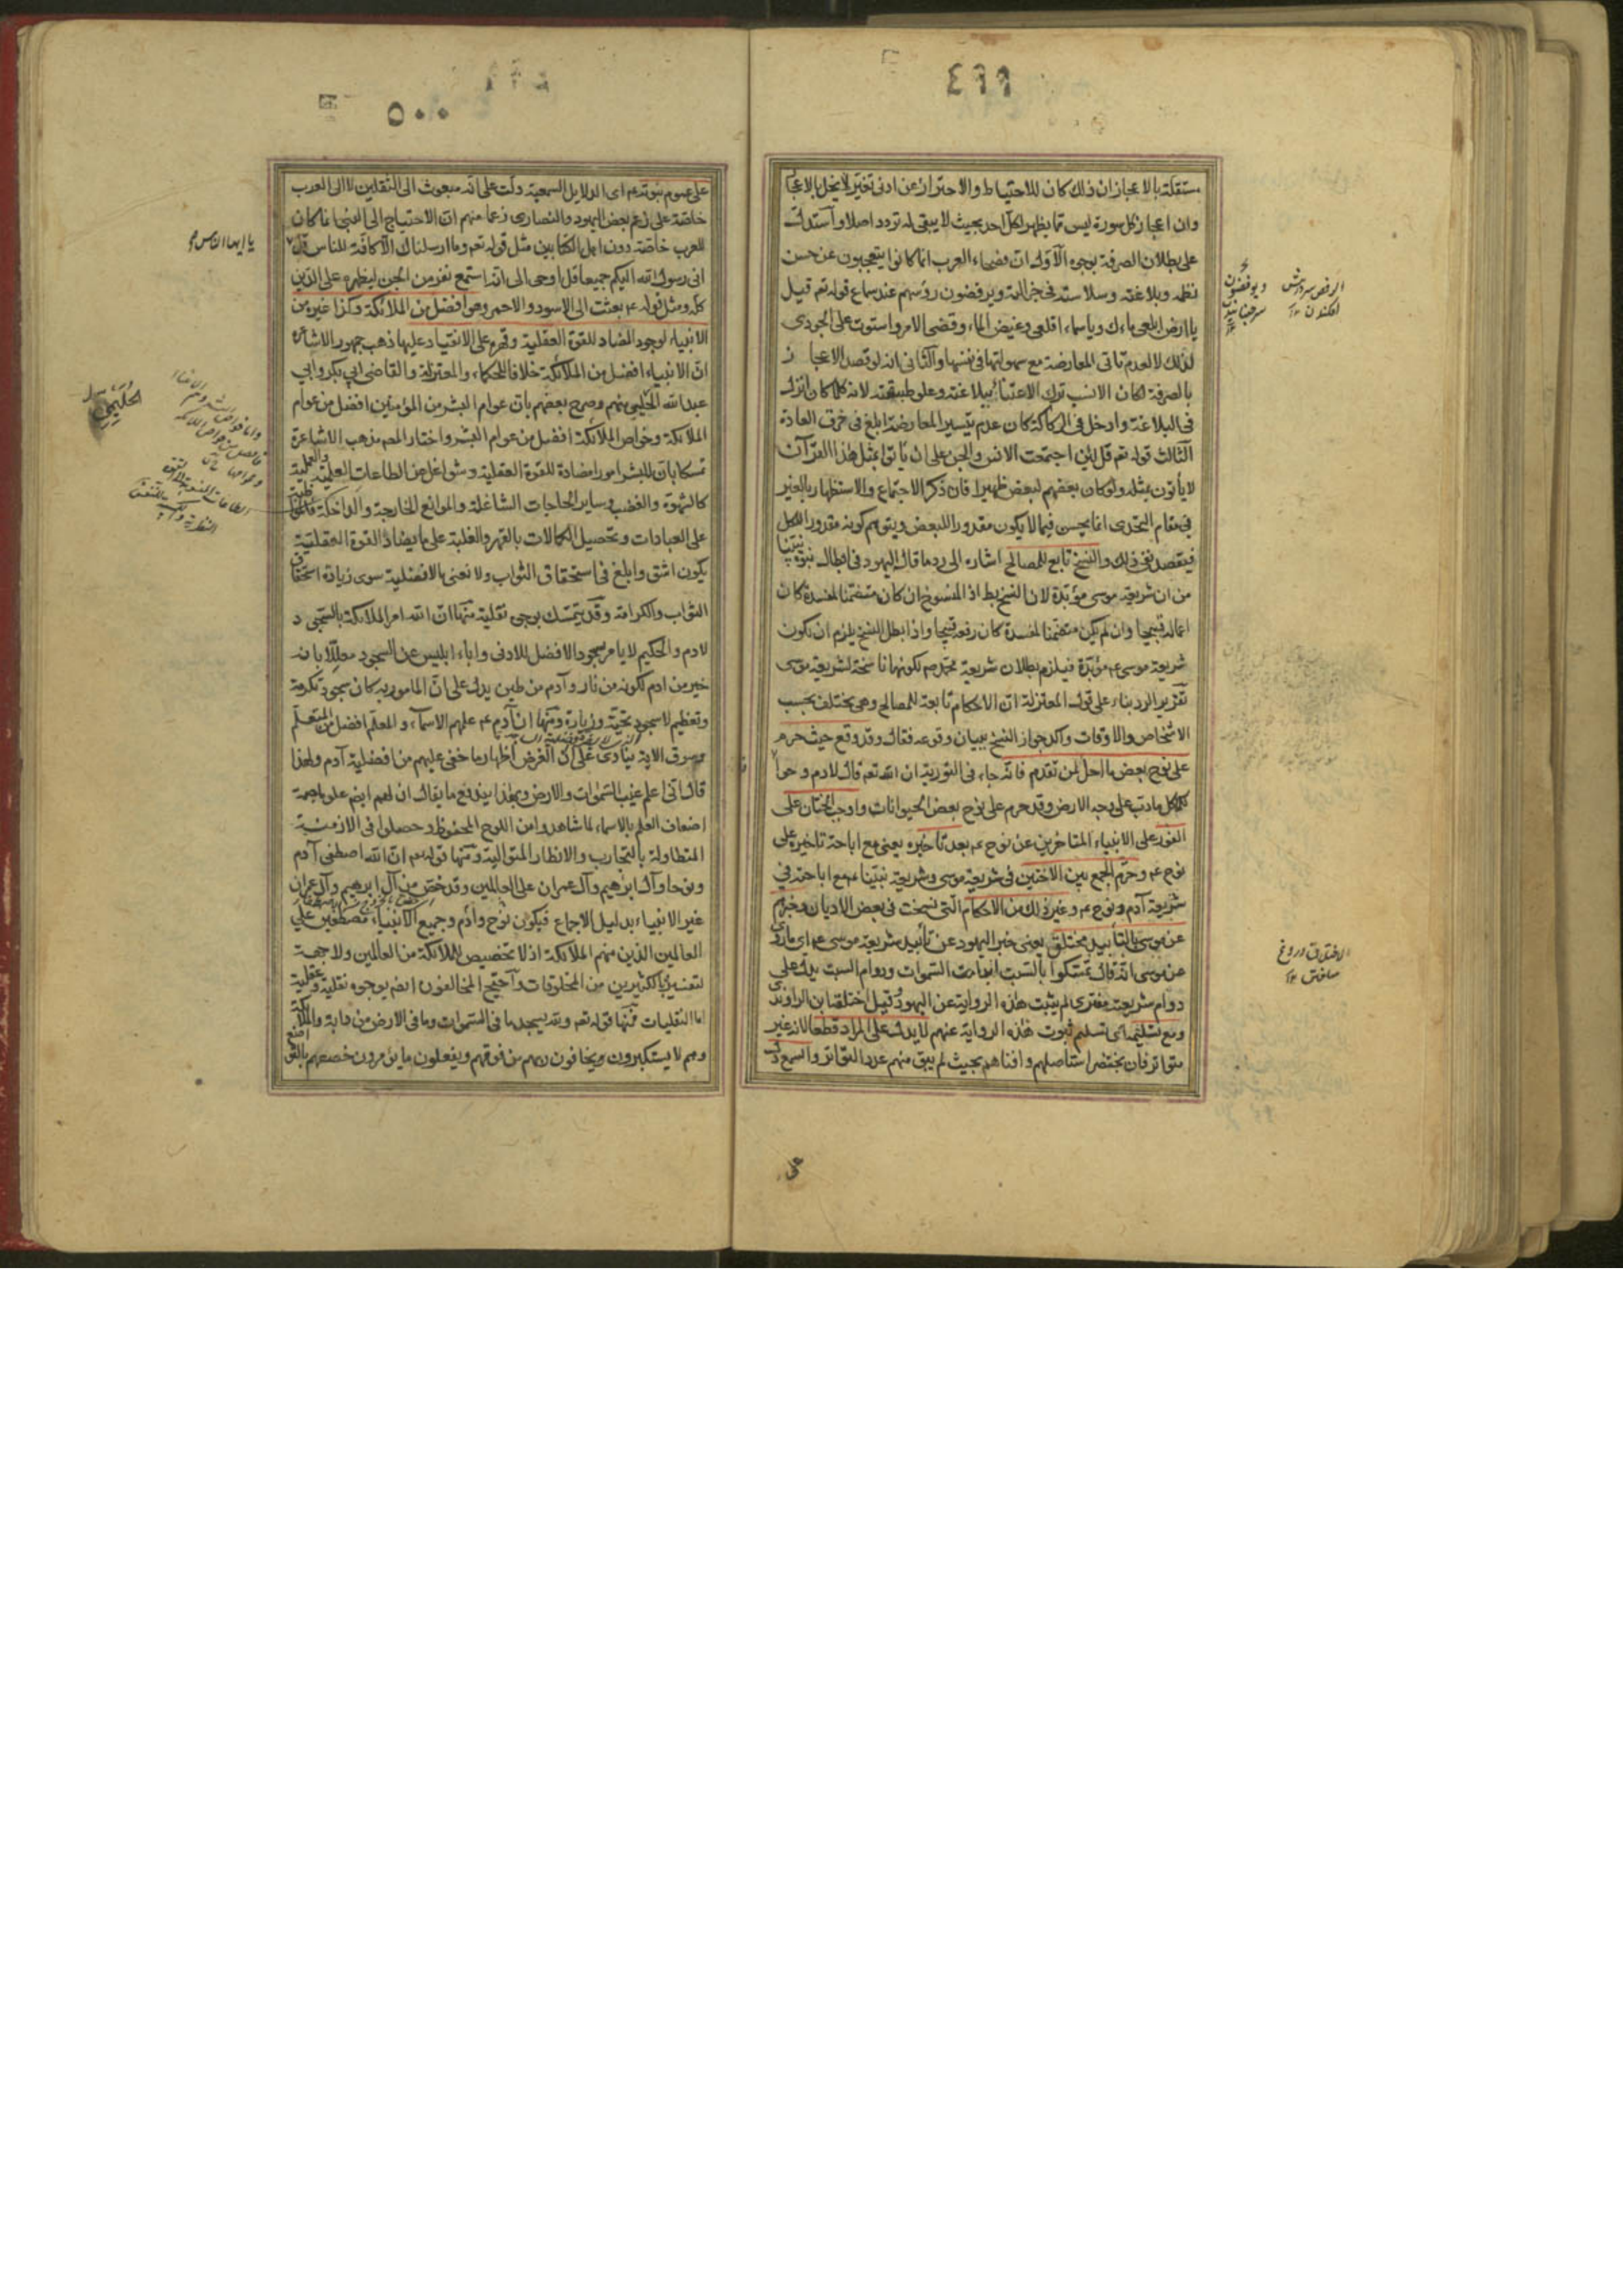 ٤٩٩
مستقلة بالاعجاز ان ذلك كان للاحتياط والاحتراز عن ادنى تغير لا يخل بالاعجاز
وان اعجاز كل سورة ليس مما يظهر لكل احد بحيث لا يبقى له تردد اصلا واستدل
على بطلان الصرفة بوجوه الاول ان فصحاء العرب انما كانوا يتعجبون عن حسن
نظمه وبلاغته وسلاسته في جزالته ويرفضون رؤسهم عند سماع قوله تعم قيل
يا ارض ابلعي ماءك ويا سماء اقلعي وغيض الماء وقضى الامر واستوت على الجودي
لذلك لا لعدم تاتى المعارضة مع سهولتها في نفسها والثاني انه لو قصد الاعجاز
بالصرفة لكان الانسب ترك الاعتناء ببلاغته وعلو طبقته لانه كلما كان انزل
في البلاغة وادخل في الركاكة كان عدم تيسير المعارضة ابلغ في خرق العادة
الثالث قوله تعم قل لئن اجتمعت الانس والجن على ان ياتوا بمثل هذا القرآن
لا يأتون بمثله ولو كان بعضهم لبعض ظهيرا فان ذكر الاجتماع والاستظهار بالغير
في مقام التحدى انما يحسن فيما لا يكون مقدورا للبعض ويتوهم كونه مقدورا للكل
فيقصد نفي ذلك والنسخ تابع للمصالح اشارة الى رد ما قال اليهود في ابطال نبوة نبينا
من ان شريعة موسى مؤبدة لان النسخ بط اذ المنسوخ ان كان متضمنا لمفسدة كان
اعماله قبيحا وان لم يكن متضمنا لمفسدة كان رفعه قبيحا واذا بطل النسخ يلزم ان يكون
شريعة موسى عم مؤبدة فيلزم بطلان شريعة محمد صم لكونها ناسخة لشريعة موسى
تقرير الرد بناء على قول المعتزلة ان الاحكام تابعة للمصالح وهي يختلف بحسب
الاشخاص والاوقات واكد جواز النسخ ببيان وقوعه فقال وقد وقع حيث حرم
على نوح بعض ما احل لمن تقدم فانه جاء في التورية ان الله تعم قال لادم وحوا
كلما دب على وجه الارض وقد حرم على نوح بعض الحيوانات واوجب الختان على
الفور على الانبياء المتاخرين عن نوح عم بعد تاخيره يعني مع اباحة تاخيره على
نوح عم وحرم الجمع بين الاختين في شريعة موسى وشريعة نبينا عم مع اباحته في
شريعة آدم ونوح عم وغير ذلك من الاحكام التي نسخت في بعض الاديان وخبرهم
عن موسى بالتأبيد مختلق يعني خبر اليهود عن تأبيد شريعة موسى عم اي ما روى
عن موسى انه قال تمسكوا بالسبت ابدا مادامت السموات ودوام السبت يدل على
دوام شريعته مفترى لم يثبت هذه الرواية عن اليهود قيل اختلقها ابن الراوندي
ومع تسليمه اي تسليم ثبوت هذه الرواية عنهم لا يدل على المراد قطعا لانه غير
متواتر فان بختنصر استأصلهم وافناهم بحيث لم يبق منهم عدد التواتر والسمع دل
على
الاختلاق دروغ
٥٠٠
على عموم نبوته عم اى الدلايل السمعية دلت على انه مبعوث الى الثقلين لا الى العرب
خاصة على زعم بعض اليهود والنصارى زعما منهم ان الاحتياج الى النبي انما كان
للعرب خاصة دون اهل الكتابين مثل قوله تعم وما ارسلناك الا كافة للناس قل
يا ايها الناس
انى رسول الله اليكم جميعا قل اوحى الى انه استمع نفر من الجن ليظهره على الدين
كله ومثل قوله عم بعثت الى الاسود والاحمر وهو افضل من الملائكة وكذا غيره من
الانبياء لوجود المضاد للقوة العقلية وقهره على الانقياد عليها ذهب جمهور الاشاعرة
ان الانبياء افضل من الملائكة خلافا للحكماء والمعتزلة والقاضي ابي بكر وابي
عبد الله الحليمي منهم وصرح بعضهم بان عوام البشر من المؤمنين افضل من عوام
الملائكة وخواص الملائكة افضل من عوام البشر واختار المصم مذهب الاشاعرة
تمسكا بان للبشر امورا مضادة للقوة العقلية وشواغل عن الطاعات العلمية والعملية
كالشهوة والغضب وساير الحاجات الشاغلة والموانع الخارجة والداخلة فالمواظبة
على العبادات وتحصيل الكمالات بالقهر والغلبة على ما يضاد القوة العقلية
يكون اشق وابلغ في استحقاق الثواب ولا نعني بالافضلية سوى زيادة استحقاق
الثواب والكرامة وقد يتمسك بوجوه نقلية منها ان الله امر الملائكة بالسجود
لادم والحكيم لا يامر بسجود الافضل للادنى واباء ابليس عن السجود معللا بانه
خير من ادم لكونه من نار وآدم من طين يدل على ان المامور به كان سجود تكرمة
وتعظيم لا سجود تحية وزيارة ومنها ان آدم عم علمهم الاسماء والمعلم افضل من المتعلم
وسوق الاية ينادى على ان الغرض اظهار ما خفى عليهم من افضلية آدم ولهذا
قال انى اعلم غيب السموات والارض وبهذا يندفع ما يقال ان لهم ايضم علوما جمة
اضعاف العلم بالاسماء لما شاهدوا من اللوح المحفوظ وحصلوا في الازمنة
المتطاولة بالتجارب والانظار المتوالية ومنها قوله تعم ان الله اصطفى آدم
ونوحا وآل ابرهيم وآل عمران على العالمين وقد خص من آل ابرهيم وآل عمران
غير الانبياء بدليل الاجماع فيكون نوح وآدم وجميع الانبياء مصطفين على
العالمين الذين منهم الملائكة اذ لا تخصيص للملائكة من العالمين ولا جهة
لتفسيره بالكثيرين من المخلوقات واحتج المخالفون ايضم بوجوه نقلية وعقلية
اما النقليات فمنها قوله تعم ولله يسجد ما في السموات وما في الارض من دابة والملائكة
وهم لا يستكبرون ويخافون ربهم من فوقهم ويفعلون ما يؤمرون خصصهم بالتواضع